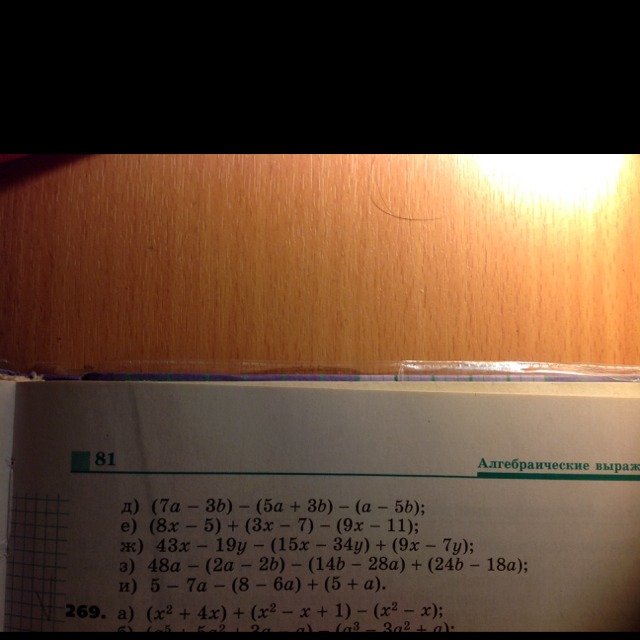 81
Алгебраические выраж
д) (7a − 3b) − (5a + 3b) − (a − 5b);
е) (8x − 5) + (3x − 7) − (9x − 11);
ж) 43x − 19y − (15x − 34y) + (9x − 7y);
з) 48a − (2a − 2b) − (14b − 28a) + (24b − 18a);
и) 5 − 7a − (8 − 6a) + (5 + a).
269. а) (x² + 4x) + (x² − x + 1) − (x² − x);